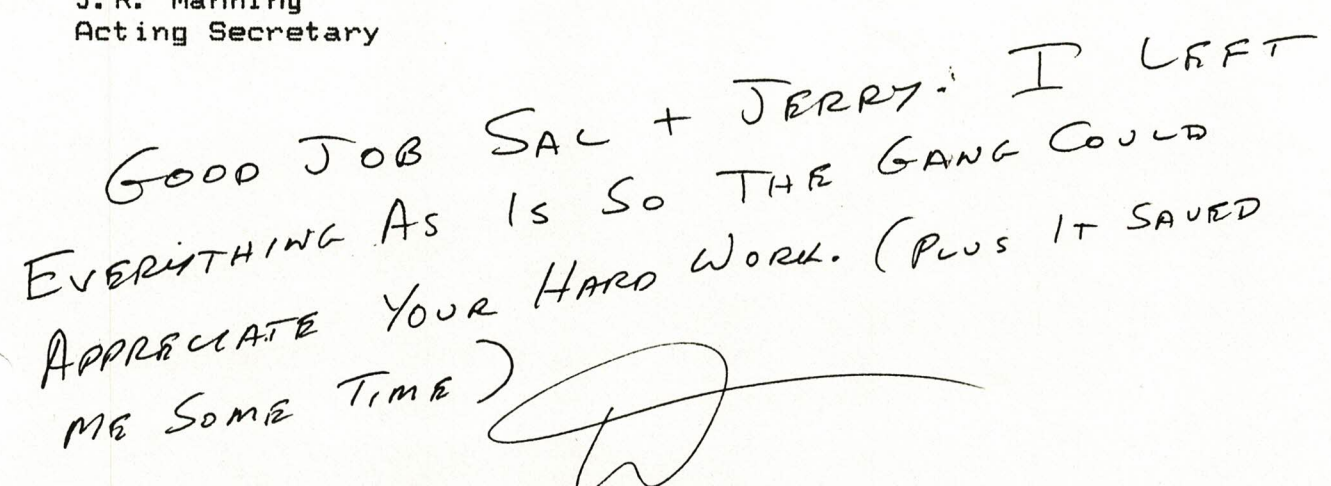 J. R. Manning
Acting Secretary
GOOD JOB SAL + JERRY: I LEFT
EVERYTHING AS IS SO THE GANG COULD
APPRECIATE YOUR HARD WORK. (PLUS IT SAVED
ME SOME TIME)